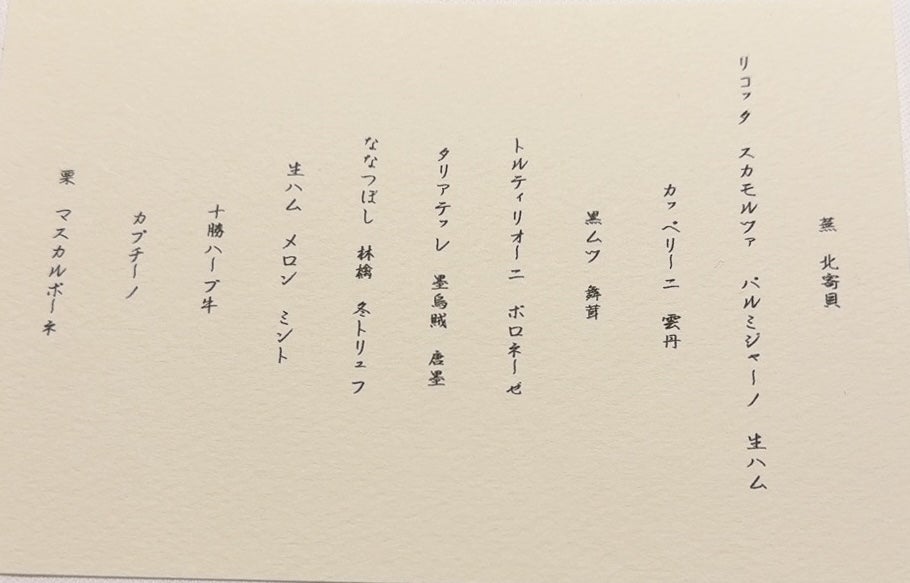 蕪　北寄貝
リコッタ　スカモルツァ　パルミジャーノ　生ハム
カッペリーニ　雲丹
黒ムツ　舞茸
トルティリオーニ　ボロネーゼ
タリアテッレ　墨烏賊　唐墨
ななつぼし　林檎　冬トリュフ
生ハム　メロン　ミント
十勝ハーブ牛
カプチーノ
栗　マスカルポーネ